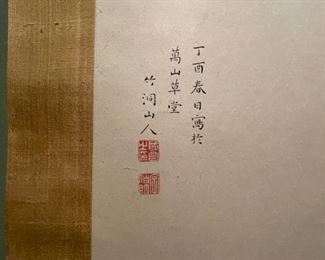 丁酉春日寫於
萬山草堂
竹洞山人